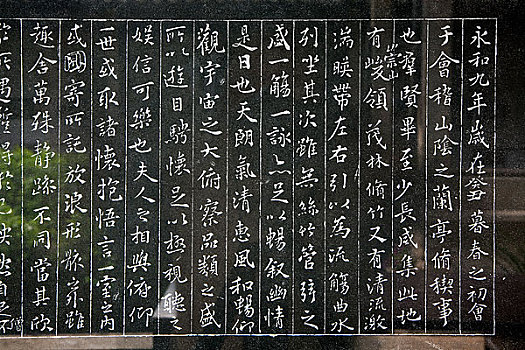 永和九年歲在癸丑暮春之初會
于會稽山陰之蘭亭脩稧事
也羣賢畢至少長咸集此地
有崇山峻領茂林脩竹又有清流激
湍暎帶左右引以為流觴曲水
列坐其次雖無絲竹管弦之
盛一觴一詠亦足以暢叙幽情
是日也天朗氣清惠風和暢仰
觀宇宙之大俯察品類之盛
所以遊目騁懷足以極視聽之
娛信可樂也夫人之相與俯仰
一世或取諸懷抱悟言一室之內
或因寄所託放浪形骸之外雖
趣舍萬殊静躁不同當其欣
於所遇蹔得於己怏然自足不